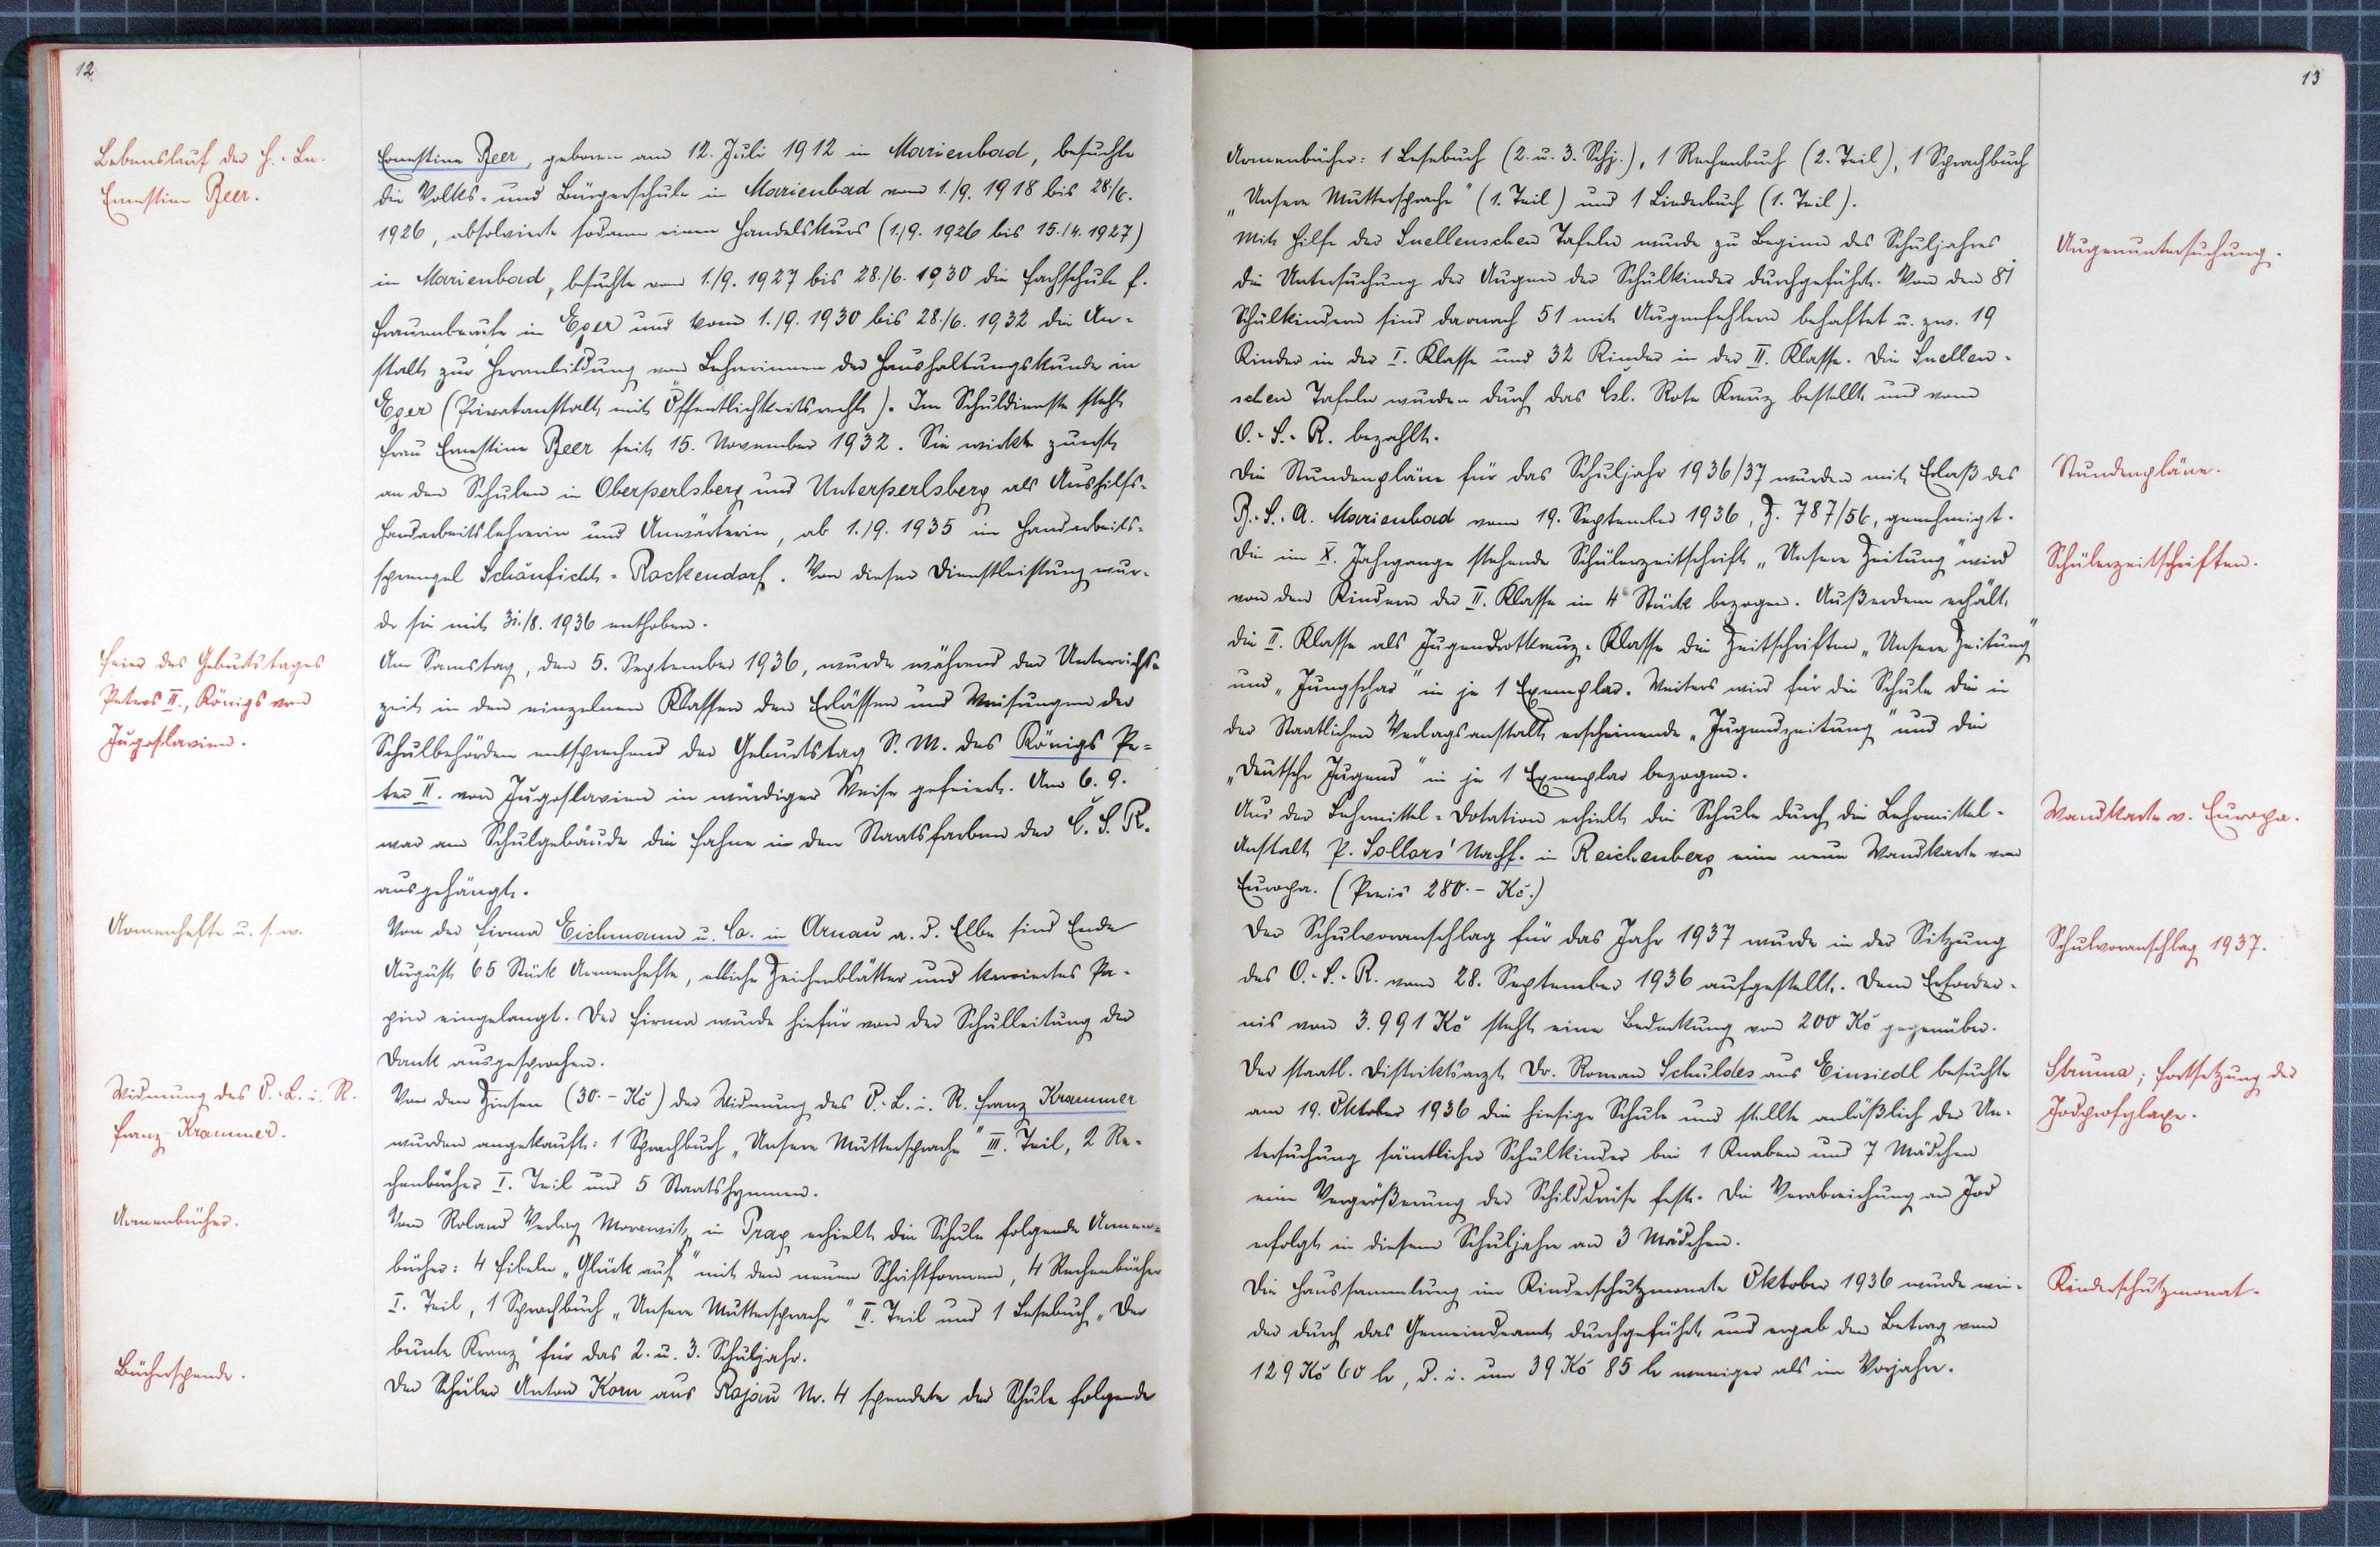 12
Lebenslauf der H.-Ln.
Ernestine Beer.
Ernestine Beer, geboren am 12. Juli 1912 in Marienbad, besuchte
die Volks- und Bürgerschule in Marienbad vom 1./9. 1918 bis 28./6.
1926, absolvierte sodann einen Handelskurs (1./9. 1926 bis 15./4. 1927)
in Marienbad, besuchte vom 1./9. 1927 bis 28./6. 1930 die Fachschule f.
Frauenberufe in Eger und vom 1./9. 1930 bis 28./6. 1932 die An-
stalt zur Heranbildung von Lehrerinnen der Haushaltungskunde in
Eger (Privatanstalt mit Öffentlichkeitsrecht). Im Schuldienste steht
Frau Ernestine Beer seit 15. November 1932. Sie wirkte zuerst
an den Schulen in Oberperlsberg und Unterperlsberg als Aushilfs-
handarbeitslehrerin und Anwärterin, ab 1./9. 1935 im Handarbeits-
sprengel Schönficht-Rockendorf. Von dieser Dienstleistung wur-
de sie mit 31./8. 1936 enthoben.
Feier des Geburtstages
Peters II., Königs von
Jugoslavien.
Am Samstag, den 5. September 1936, wurde während der Unterrichts-
zeit in den einzelnen Klassen den Erlässen und Weisungen der
Schulbehörden entsprechend der Geburtstag S. M. des Königs Pe-
ter II. von Jugoslavien in würdiger Weise gefeiert. Am 6. 9.
war am Schulgebäude die Fahne in den Staatsfarben der Č. S. R.
ausgehängt.
Armenhefte u. s. w.
Von der Firma Eichmann u. Co. in Arnau a. d. Elbe sind Ende
August 65 Stück Armenhefte, etliche Zeichenblätter und karriertes Pa-
pier eingelangt. Der Firma wurde hiefür von der Schulleitung der
Dank ausgesprochen.
Widmung des O.-L. i. R.
Franz Krammer.
Von den Zinsen (30.- Kč) der Widmung des O.-L. i. R. Franz Krammer
wurden angekauft: 1 Sprachbuch „Unsere Muttersprache" III. Teil, 2 Re-
chenbücher I. Teil und 5 Staatshymnen.
Armenbücher.
Vom Roland Verlag Morawitz in Prag erhielt die Schule folgende Armen-
bücher: 4 Fibeln „Glück auf" mit den neuen Schriftformen, 4 Rechenbücher
I. Teil, 1 Sprachbuch „Unsere Muttersprache" II. Teil und 1 Lesebuch „Der
bunte Kranz" für das 2. u. 3. Schuljahr.
Bücherspende.
Der Schüler Anton Korn aus Rojau Nr. 4 spendete der Schule folgende
13
Armenbücher: 1 Lesebuch (2. u. 3. Schj.), 1 Rechenbuch (2. Teil), 1 Sprachbuch
„Unsere Muttersprache" (1. Teil) und 1 Liederbuch (1. Teil).
Augenuntersuchung.
Mit Hilfe der Snellenschen Tafeln wurde zu Beginn des Schuljahres
die Untersuchung der Augen der Schulkinder durchgeführt. Von den 81
Schulkindern sind darnach 51 mit Augenfehlern behaftet u. zw. 19
Kinder in der I. Klasse und 32 Kinder in der II. Klasse. Die Snellen-
schen Tafeln wurden durch das čsl. Rote Kreuz bestellt und vom
O.-S.-R. bezahlt.
Stundenpläne.
Die Stundenpläne für das Schuljahr 1936/37 wurden mit Erlaß des
B.-S.-A. Marienbad vom 19. September 1936, Z. 787/56, genehmigt.
Schülerzeitschriften.
Die im X. Jahrgange stehende Schülerzeitschrift „Unsere Zeitung" wird
von den Kindern der II. Klasse in 4 Stück bezogen. Außerdem erhält
die II. Klasse als Jugendrotkreuz-Klasse die Zeitschriften „Unsere Zeitung"
und „Jungschar" in je 1 Exemplar. Weiters wird für die Schule die in
der Staatlichen Verlagsanstalt erscheinende „Jugendzeitung" und die
„Deutsche Jugend" in je 1 Exemplar bezogen.
Wandkarte v. Europa.
Aus der Lehrmittel-Dotation erhielt die Schule durch die Lehrmittel-
Anstalt P. Sollors' Nachf. in Reichenberg eine neue Wandkarte von
Europa. (Preis 280.- Kč.)
Schulvoranschlag 1937.
Der Schulvoranschlag für das Jahr 1937 wurde in der Sitzung
des O.-S.-R. vom 28. September 1936 aufgestellt. Dem Erforder-
nis von 3.991 Kč steht eine Bedeckung von 200 Kč gegenüber.
Struma; Fortsetzung der
Jodprofylaxe.
Der staatl. Distriktsarzt Dr. Roman Schuldes aus Einsiedl besuchte
am 19. Oktober 1936 die hiesige Schule und stellte anläßlich der Un-
tersuchung sämtlicher Schulkinder bei 1 Knaben und 7 Mädchen
eine Vergrößerung der Schilddrüse fest. Die Verabreichung an Jod
erfolgt in diesem Schuljahre an 3 Mädchen.
Kinderschutzmonat.
Die Haussammlung im Kinderschutzmonate Oktober 1936 wurde wie-
der durch das Gemeindeamt durchgeführt und ergab den Betrag von
129 Kč 60 h, d. i. um 39 Kč 85 h weniger als im Vorjahre.